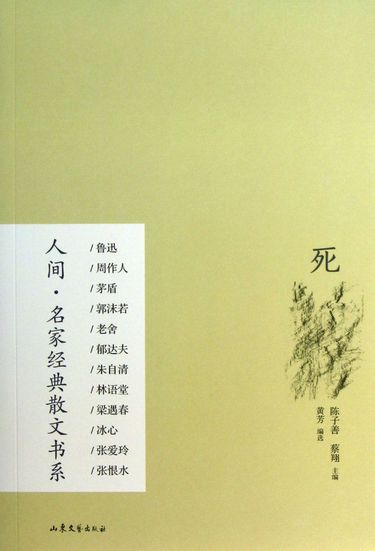 死
陈子善 蔡翔 主编
黄芳 编选
人间·名家经典散文书系
/鲁迅
/周作人
/茅盾
/郭沫若
/老舍
/郁达夫
/朱自清
/林语堂
/梁遇春
/冰心
/张爱玲
/张恨水
山东文艺出版社